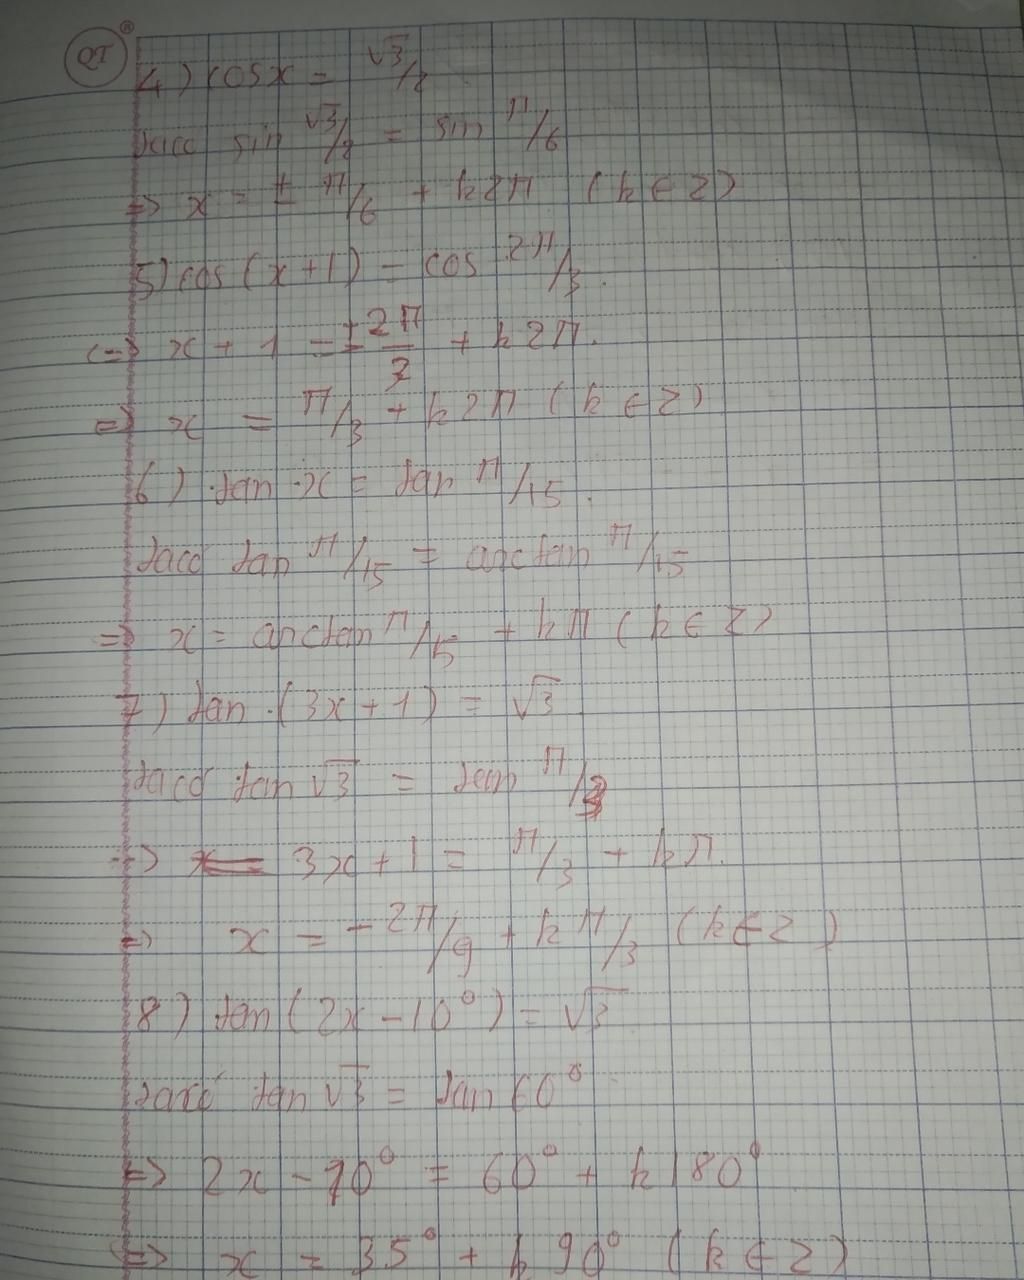 QT ®
4) cosx = √3/2
taco sin √3/2 = sin π/6
=> x = ± π/6 + k2π (k ∈ Z)
5) cos(x+1) = cos 2π/3.
<=> x + 1 = ± 2π/3 + k2π.
=> x = π/3 + k2π (k ∈ Z)
6) tan x = tan π/15.
taco tan π/15 = arctan π/15
=> x = arctan π/15 + kπ (k ∈ Z)
7) tan (3x+1) = √3
taco tan √3 = tan π/3
=> 3x+1 = π/3 + kπ.
=> x = -2π/9 + kπ/3 (k ∈ Z)
8) tan(2x-10°) = √3
taco tan √3 = tan 60°
=> 2x - 10° = 60° + k180°
=> x = 35° + k90° (k ∈ Z)